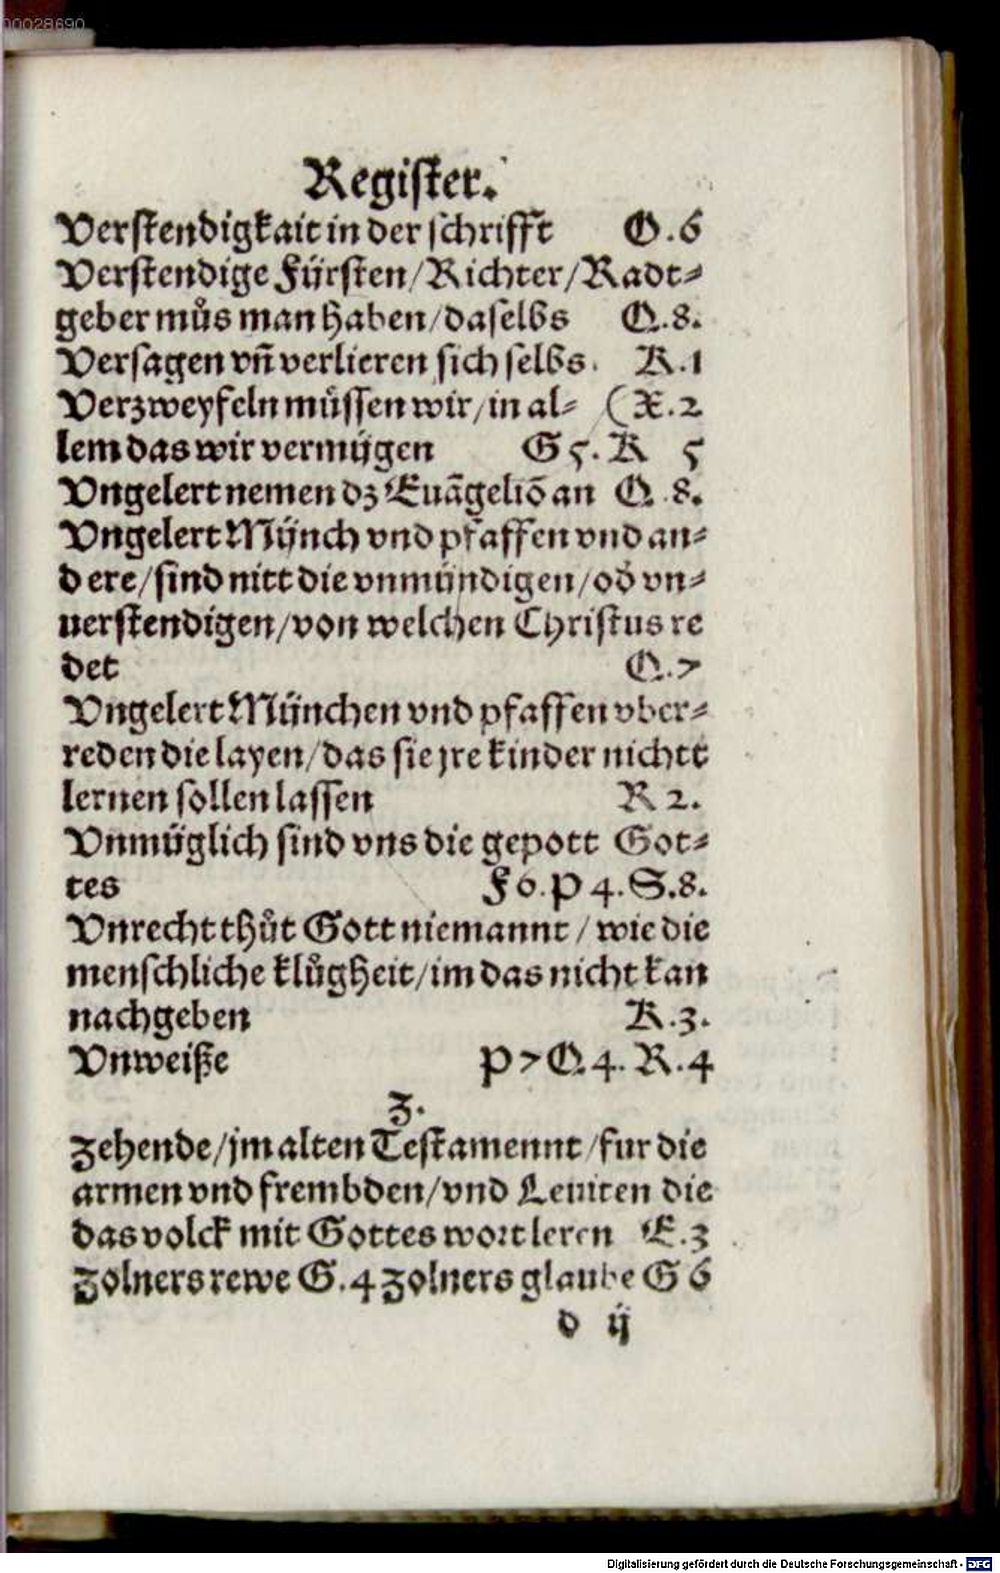 00028690
Register.
Verstendigkait in der schrifft O.6
Verstendige Fürsten/Richter/Radt⸗
geber můs man haben/daselbs Q.8.
Versagen vñ verlieren sich selbs. K.1
Verzweyfeln müssen wir/in al⸗ (X.2
lem das wir vermügen G 5. K 5
Vngelert nemen dz Euãgeliõ an Q.8.
Vngelert Münch vnd pfaffen vnd an⸗
dere/sind nitt die vnmündigen/od̕ vn⸗
uerstendigen/von welchen Christus re
det Q.7
Vngelert München vnd pfaffen vber⸗
reden die layen/das sie jre kinder nichtt
lernen sollen lassen R 2.
Vnmüglich sind vns die gepott Got⸗
tes F 6. P 4. S.8.
Vnrecht thůt Gott niemannt/wie die
menschliche klůgheit/im das nicht kan
nachgeben K.3.
Vnweiße P 7 Q.4. R.4
Z.
Zehende/jm alten Testamennt/fur die
armen vnd frembden/vnd Leuiten die
das volck mit Gottes wort leren E.3
Zolners rewe G.4 Zolners glaube G 6
d ij
Digitalisierung gefördert durch die Deutsche Forschungsgemeinschaft - DFG